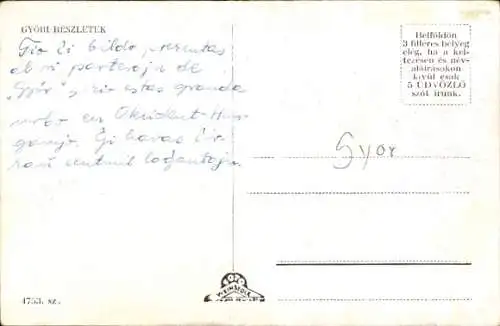 GYŐRI RÉSZLETEK
Tio ĉi bildo prezentas
al vi partesojn de
"Győr", ĝi estas granda
urbo en Okcident-Hun-
garujo. Ĝi havas ĉir-
kaŭ centmil loĝantojn.
Belföldön
3 filléres bélyeg
elég, ha a kel-
tezésen és név-
aláírásokon
kívül csak
5 ÜDVÖZLŐ
szót írunk.
Gyor
FOTO
WEINSTOCK
4753. sz.